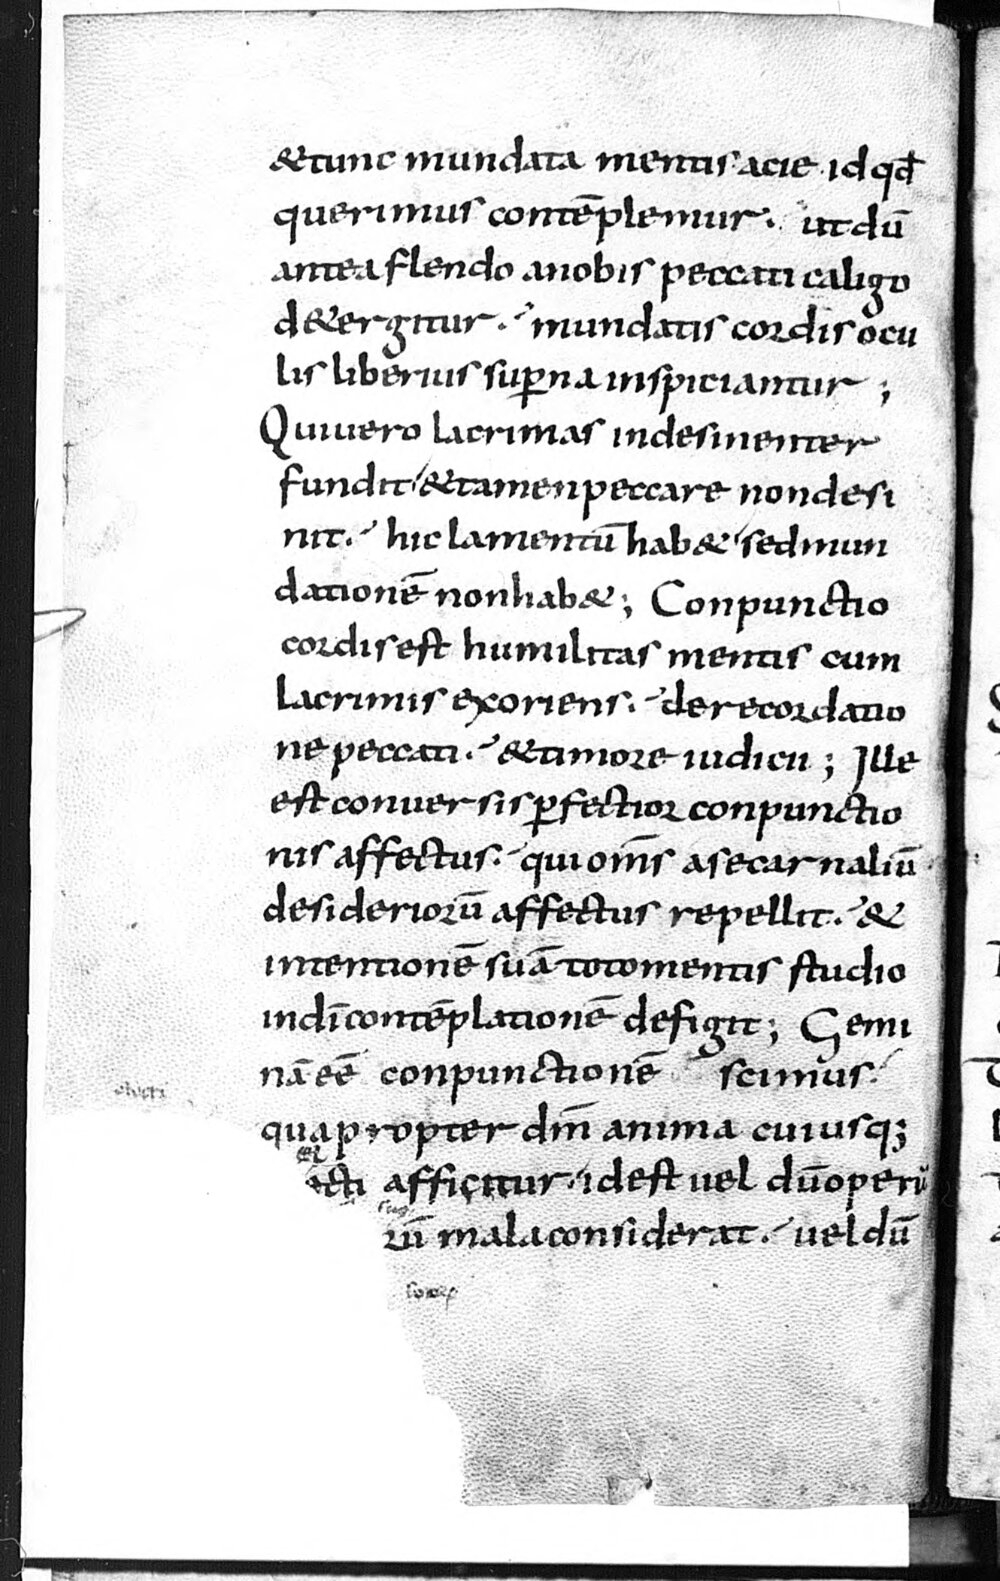 &tunc mundata mentis acie id qđ
querimus contēplemur. ut dū
antea flendo anobis peccati caligo
d&ergitur. mundatis cordis ocu
lis liberius suꝑna inspiciantur ;
Quiuero lacrimas indesinenter
fundit &tamen peccare non desi
nit. hic lamentū hab& sed mun
dationē non hab&; Conpunctio
cordis est humilitas mentis cum
lacrimis exoriens. de recordatio
ne peccati. &timore iudicii ; Ille
est conuersis ꝑfectior conpunctio
nis affectus. qui om̄s ase carnaliū
desideriorū affectus repellit. &
intentionē suā toto mentis studio
in dī contēplationē defigit; Gemi
nā eē conpunctionē scimus.
qua propter dm̄ anima cuiusq;
el
ecti afficitur. id est uel dū operū
suo
rū mala considerat. uel dū